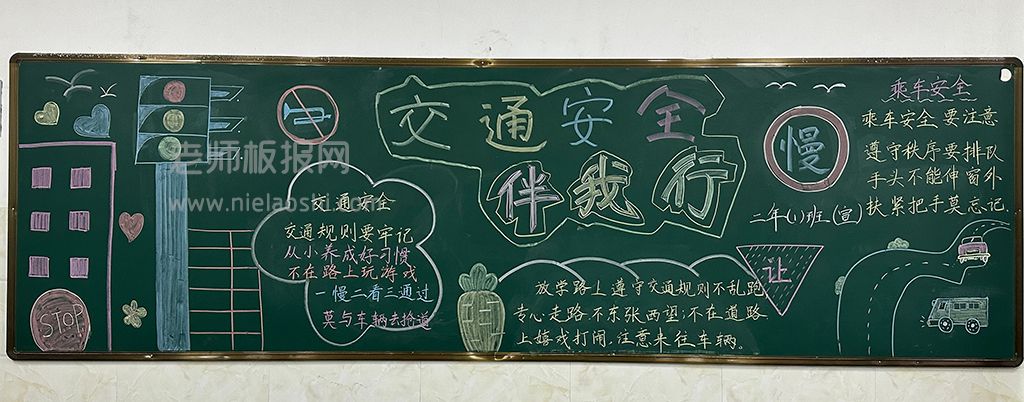 交通安全
伴我行
老师板报网
www.nielaoshi.com
STOP
交通安全
交通规则要牢记
从小养成好习惯
不在路上玩游戏
一慢二看三通过
莫与车辆去抢道
放学路上遵守交通规则不乱跑
专心走路,不东张西望;不在道路
上嬉戏打闹,注意来往车辆。
让
慢
二年(1)班(宣)
乘车安全
乘车安全要注意
遵守秩序要排队
手头不能伸窗外
扶紧把手莫忘记.